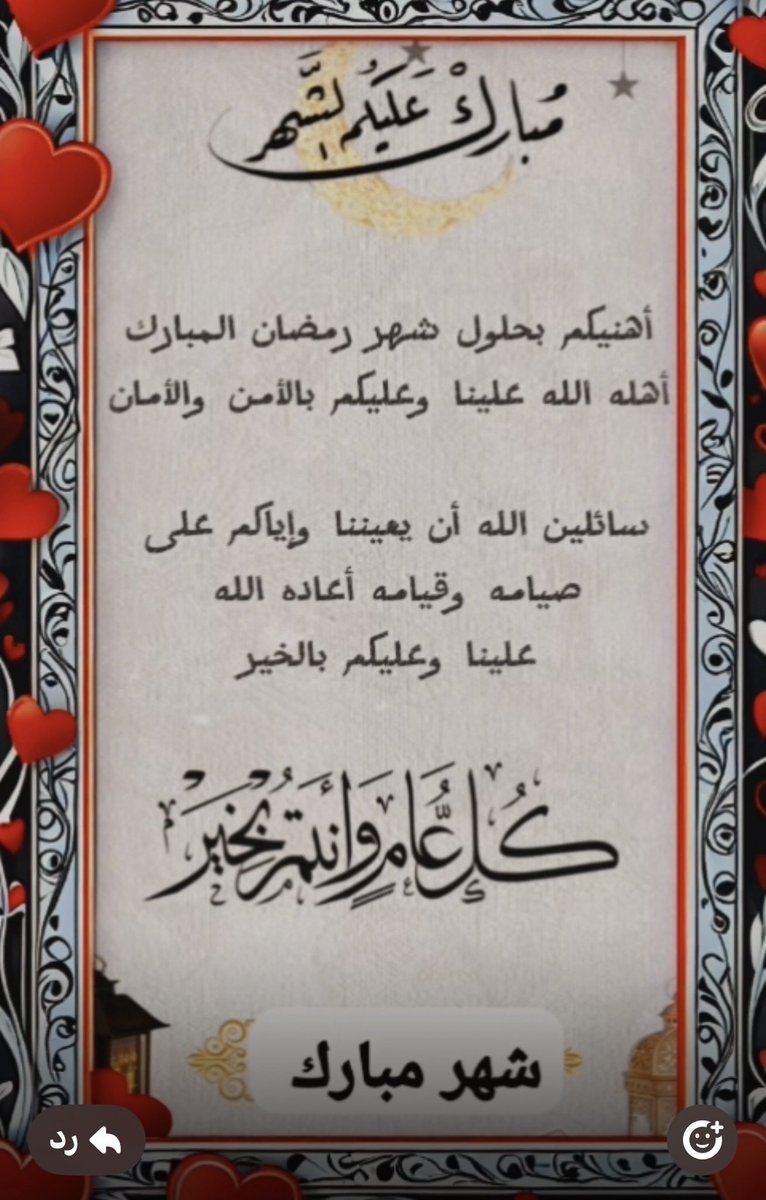 مُبارِكْ عَلَيكُم لشَّهر
أهنيكم بحلول شهر رمضان المبارك
أهله الله علينا وعليكم بالأمن والأمان
سائلين الله أن يعيننا وإياكم على
صيامه وقيامه أعاده الله
علينا وعليكم بالخير
كُل عَّامٍ وَأَنتُم بِخَيرْ
شهر مبارك
رد